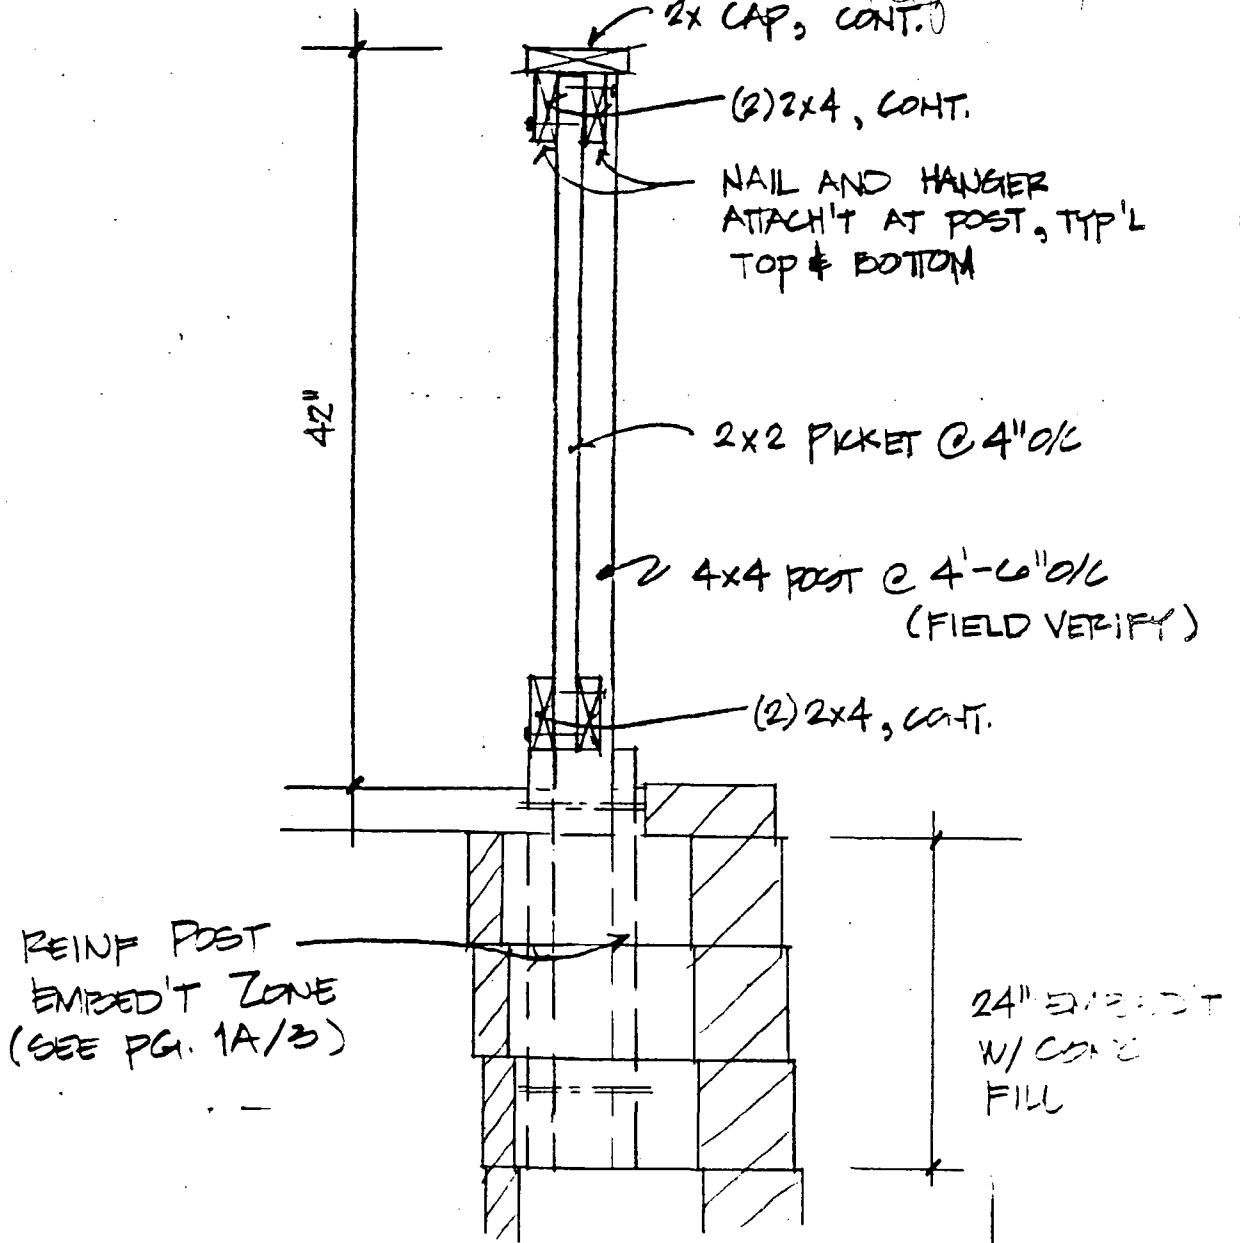 2x CAP, CONT.
(2) 2x4, CONT.
NAIL AND HANGER
ATTACH'T AT POST, TYP'L
TOP & BOTTOM
42"
2x2 PICKET @ 4" O/C
4x4 POST @ 4'-6" O/C
(FIELD VERIFY)
(2) 2x4, CONT.
REINF POST
EMBED'T ZONE
(SEE PG. 1A/3)
24" EMBED'T
W/ CONC
FILL